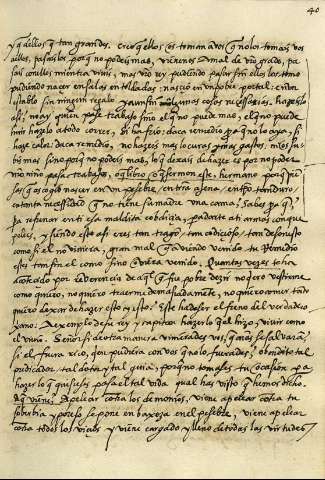 40
y a dellos q̃ tan grandes. creo q̃ ellos os toman a vos q̃ no los tomais vos
a ellos, pasais los porq̃ no podeis mas, vivenes a mal de
sais con ellos mientra vivis, mas vro rey pudiendo pasar sin ellos los tomo
pudiendo nacer en salas entoldadas: nascio en un pobre portal:
blo sin ningun regalo y aun sin algunas cosas necessarias, hazerlo
asi no ay quien pase trabajo sino el que puede mas, el q̃ no puede
mas hazelo a todo correr, si ha frio: daca remedio pa q̃ no lo aya, si
haze calor: daca remedio, no hazeis mas locuras y mas gastos,
mas sino porq̃ no podeis mas, lo q̃ dexais de hazer es por no poder
nio niño pasa trabajos, o q̃ libro o q̃ sermon este, hermano porq̃
q̃ escogio nascer en un pesebre, entre ajena,
con tanta necessidad q̃ no tiene su madre una cama? Sabes pa q̃?
pa refrenar en ti esa maldita cobdicia, pa darte a ti armas con que
pelees, y siendo esto asi eres tan tragon, tan codicioso, tan desonesto
como si el no viniera, gran mal q̃ aviendo venido tu Remedio
estes tan sin el como sino oviera venido. Quantas vezes te ha
por reverencia de aq̃l q̃ fue pobre dezir no quiero vestirme
como quiero, no quiero traerme demasiadamente, no quiero comer tanto
quiero dexar de hazer esto y esto? Este ha de ser el freno del verdadero
xpiano: A exemplo de su rey y capitan hazer lo que el hizo, vivir como
el vivio. Señor si de otra manera viniera des vos q̃ años se salvara?
si el fuera rico, quien pudiera con vos q̃ no lo fuerades, o bendito tal
predicador tal dotor y tal guia, porq̃ no tomases tu ocasion pa
hazer lo q̃ quisieses pasa el tal vida qual has visto q̃ hemos dicho.
A q̃ viene? A pelear contra los demonios, viene a pelear contra tu
sobervia y por eso se pone en baxeza en el pesebre, viene a pelear
contra todos los vicios y viene cargado y lleno de todas las virtudes